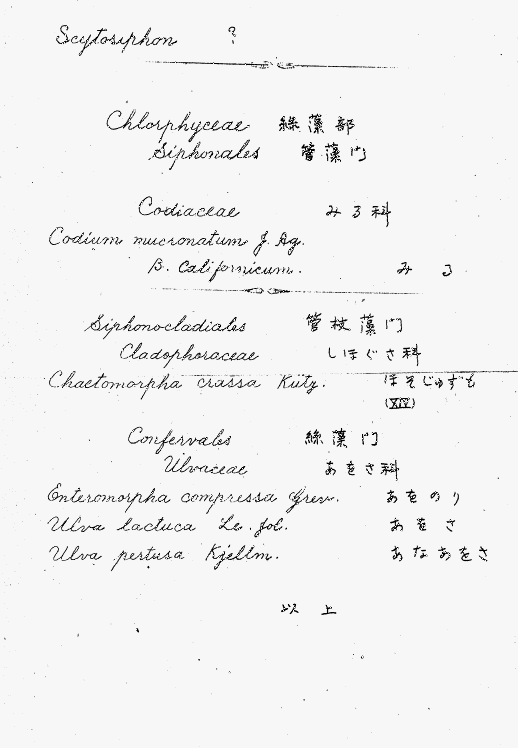 Scytosiphon ?
Chlorphyceae 緑藻部
Siphonales 管藻門
Codiaceae みる科
Codium mucronatum J. Ag.
B. Californicum. みる
Siphonocladiales 管枝藻門
Cladophoraceae しほぐさ科
Chaetomorpha crassa Kütz. ほそじゅずも
(XIV)
Confervales 絲藻門
Ulvaceae あをさ科
Enteromorpha compressa Grev. あをのり
Ulva lactuca Le. Jol. あをさ
Ulva pertusa Kjellm. あなあをさ
以上